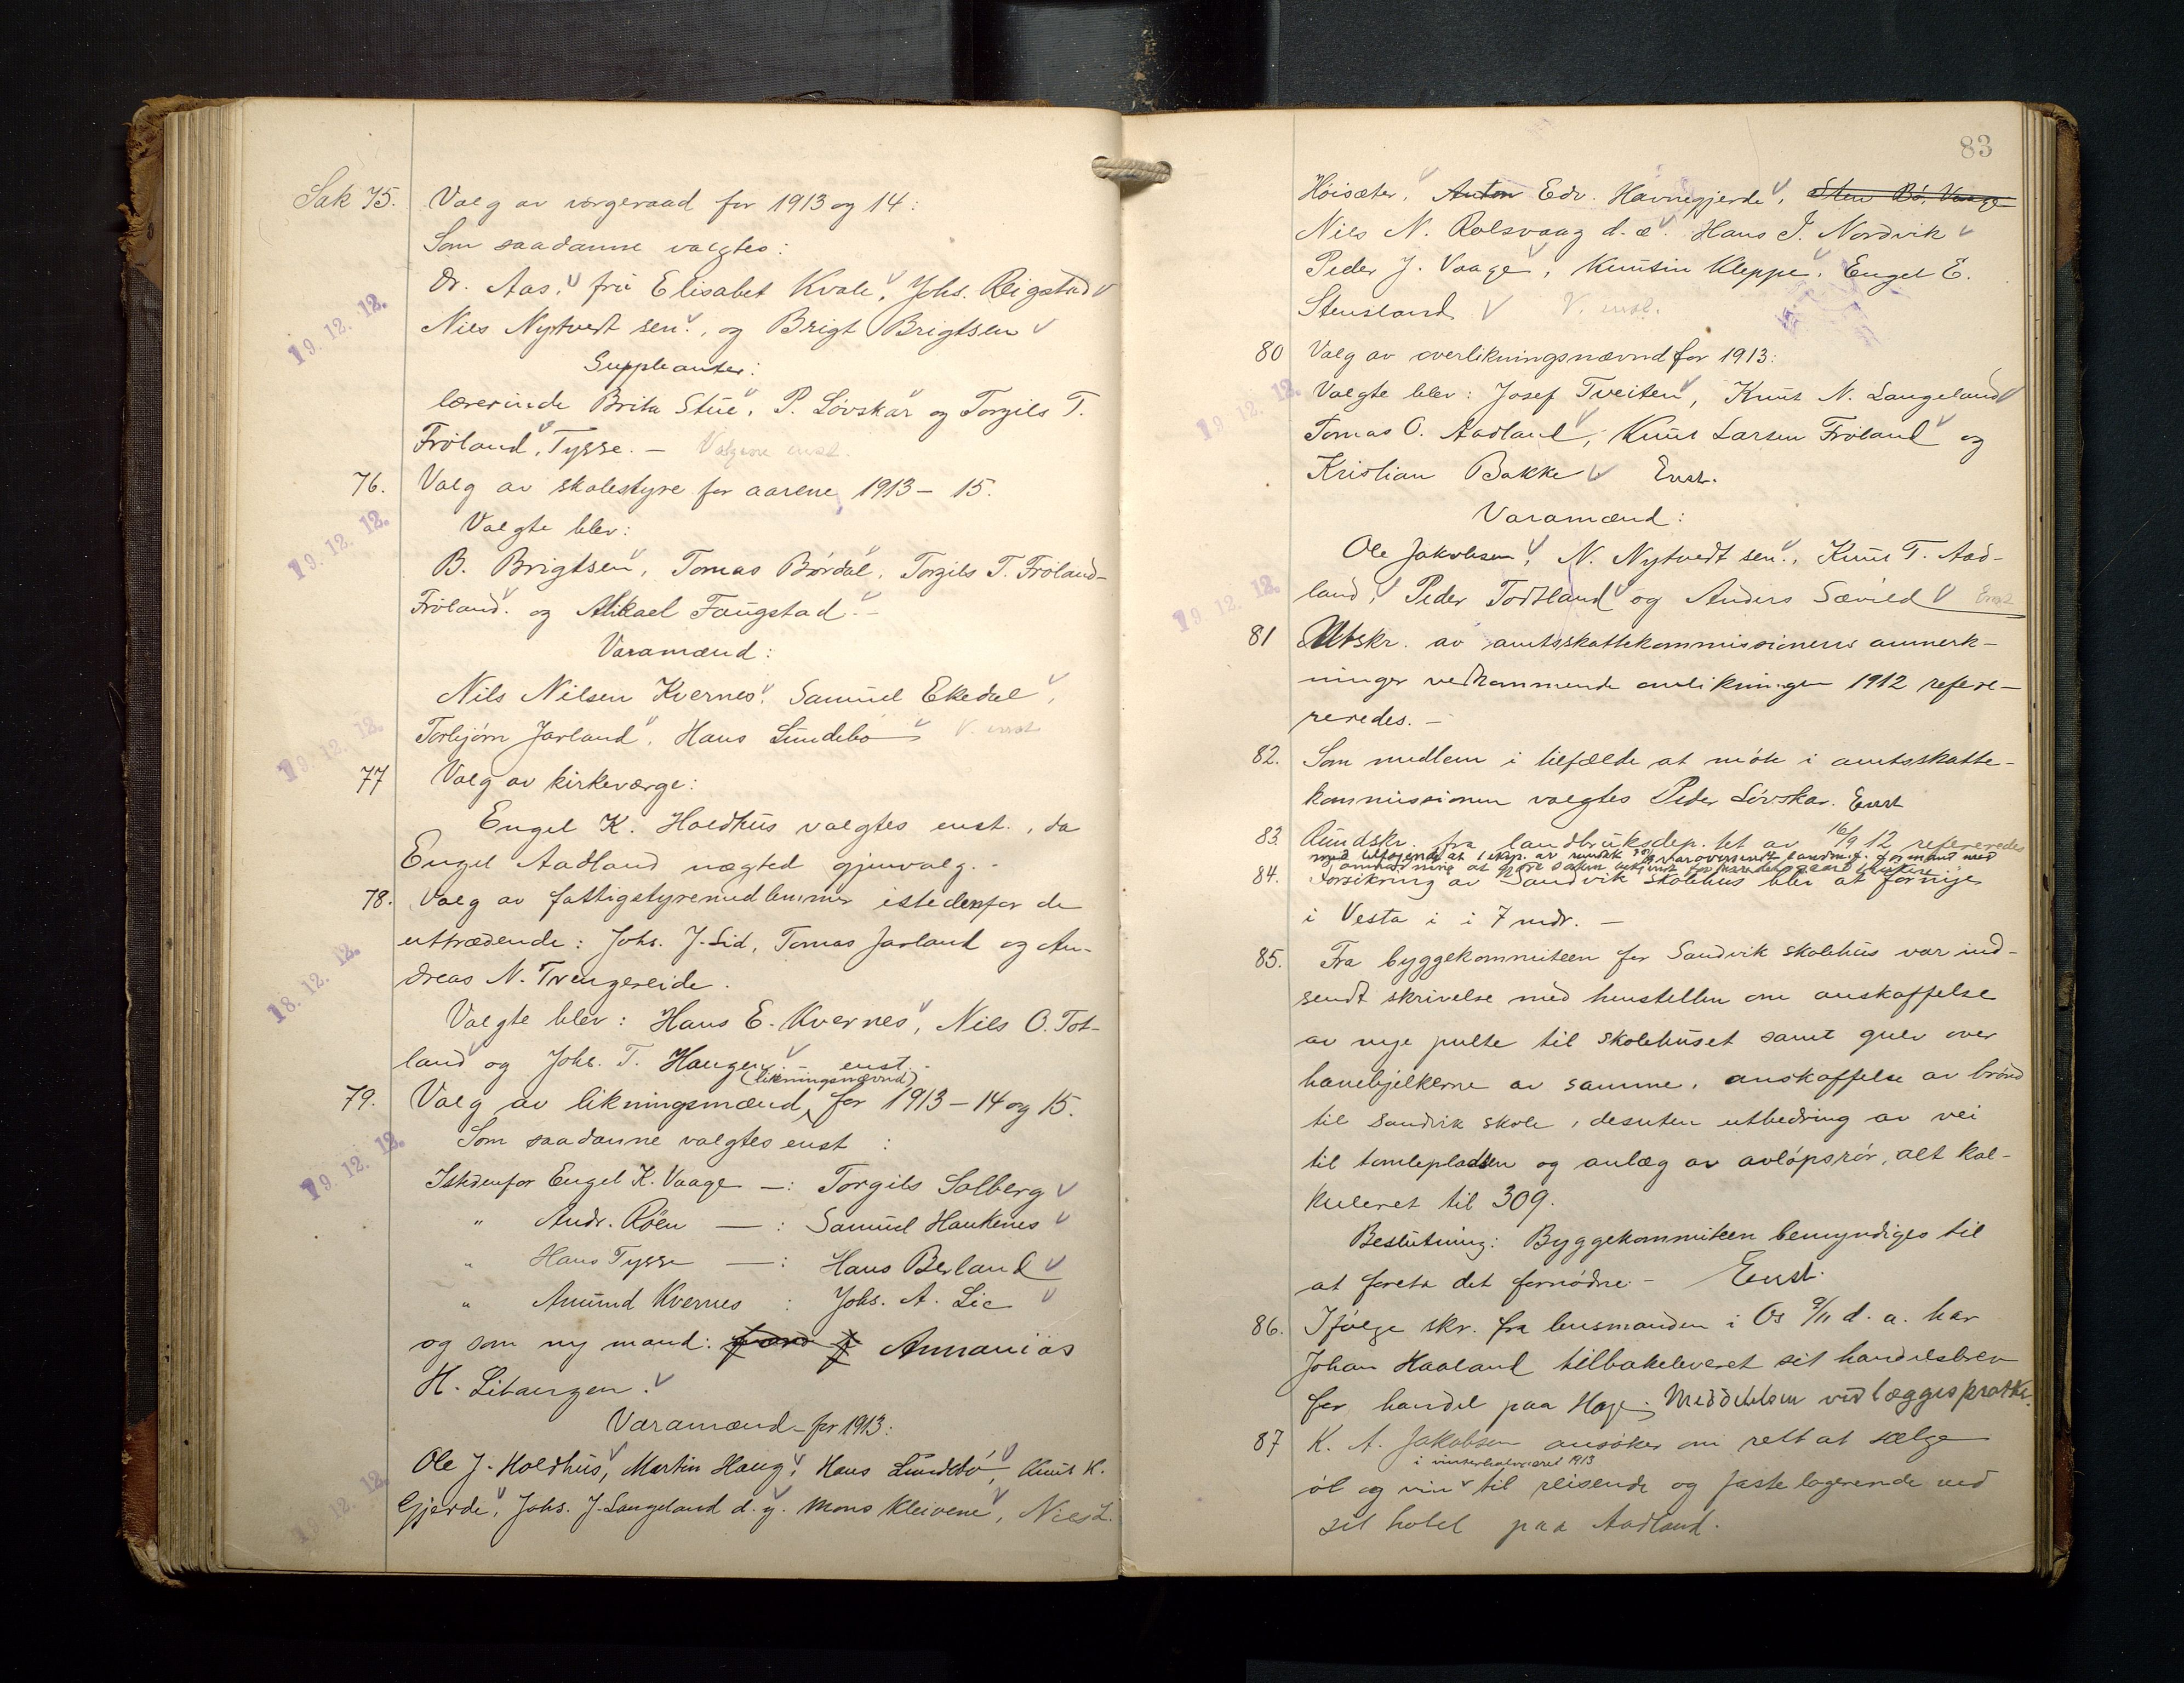 Sak 75. Valg av vergeraad for 1913 og 14:
Som saadanne valgtes:
Dr. Aas, fru Elisabet Kvale, Johs. Reigstad
19. 12. 12.
Nils Nytvedt sen., og Brigt Brigtsen
Suppleanter:
lærerinde Brita Stue, P. Løvskar og Torgils T.
Frøland, Tysse. — Valgene enst.
76. Valg av skolestyre for aarene 1913 - 15.
19. 12. 12.
Valgte blev:
B. Brigtsen, Tomas Børdal, Torgils T. Frøland-
Frøland. og Mikael Faugstad. -
Varamænd:
Nils Nilsen Kvernes, Samuel Ekedal,
Torbjørn Jarland, Hans Lundebø V. enst.
19. 12. 12.
77 Valg av kirkeverge:
Engel K. Holdhus valgtes enst., da
Engel Aadland nægted gjenvalg. -
78. Valg av fattigstyremedlemmer istedenfor de
uttrædende: Johs. J. Lid, Tomas Jarland og An-
18. 12. 12.
dreas N. Trengereide.
Valgte blev: Hans E. Kvernes, Nils O. Tot-
land og Johs. T. Haugen. - enst. -
(likningsnævnd)
79. Valg av likningsmænd for 1913 - 14 og 15.
19. 12. 12.
Som saadanne valgtes enst :
Istedenfor Engel K. Vaage —: Torgils Solberg
" Andr. Røen — : Samuel Haukenes
" Hans Tysse — : Hans Berland
" Amund Kvernes : Johs. A. Lie
og som ny mand: Annanias
H. Litangen.
Varamænd for 1913:
19. 12. 12.
Ole J. Holdhus, Martin Haug, Hans Lundebø, Knut K.
Gjerde, Johs. J. Langeland d. y. Mons Kleivene, Nils L.
83
Høisæter, Anton Edv. Havnegjerde, Sten Bø, Vaage
Nils N. Rolsvaag d. æ. Hans J. Nordvik
Peder J. Vaage, Knutin Kleppe, Engel E.
Stensland V. enst.
80 Valg av overlikningsnævnd for 1913:
19. 12. 12.
Valgte blev: Josef Tveiten, Knut N. Langeland
Tomas O. Aadland, Knut Larsen Frøland og
Kristian Bakke Enst.
Varamænd:
Ole Jakobsen, N. Nytvedt sen., Knut T. Aad-
19. 12. 12.
land, Peder Todtland og Anders Sævild Enst
81 Utskr. av amtsskattekommissionens anmerk-
ninger vedkommende anlikningen 1912 refere-
reredes. -
82. Som medlem i tilfælde at møte i amtsskatte-
kommissionen valgtes Peder Løvskar. Enst
83. Rundskr. fra landbruksdep.tet av 16/9 12 refereredes
med tilføiende at 1 ekspl. av rundsk var oversendt landm.f. formand med
anmodning at gjøre saken bekjent for
84. Forsikring av Sandvik skolehus blev at fornye
i Vesta i i 7 mdr. -
85. Fra byggekommiteen for Sandvik skolehus var ind-
sendt skrivelse med henstillen om anskaffelse
av nye pulte til skolehuset samt gulv over
hanebjelkerne av samme, anskaffelse av brønd
til Sandvik skole, desuten utbedring av vei
til tomtepladsen og anlæg av avløpsrør, alt kal-
kuleret til 309.
Beslutning: Byggekommiteen bemyndiges til
at foreta det fornødne. - Enst.
86. Ifølge skr. fra lensmanden i Os 9/11 d. a. har
Johan Haaland tilbakeleveret sit handelsbrev
for handel paa Hage. Meddelelsen vedlægges protk.
87 K. A. Jakobsen ansøker om rett at sælge
i vinterhalvaaret 1913
øl og vin til reisende og faste logerende ved
sit hotel paa Aadland.